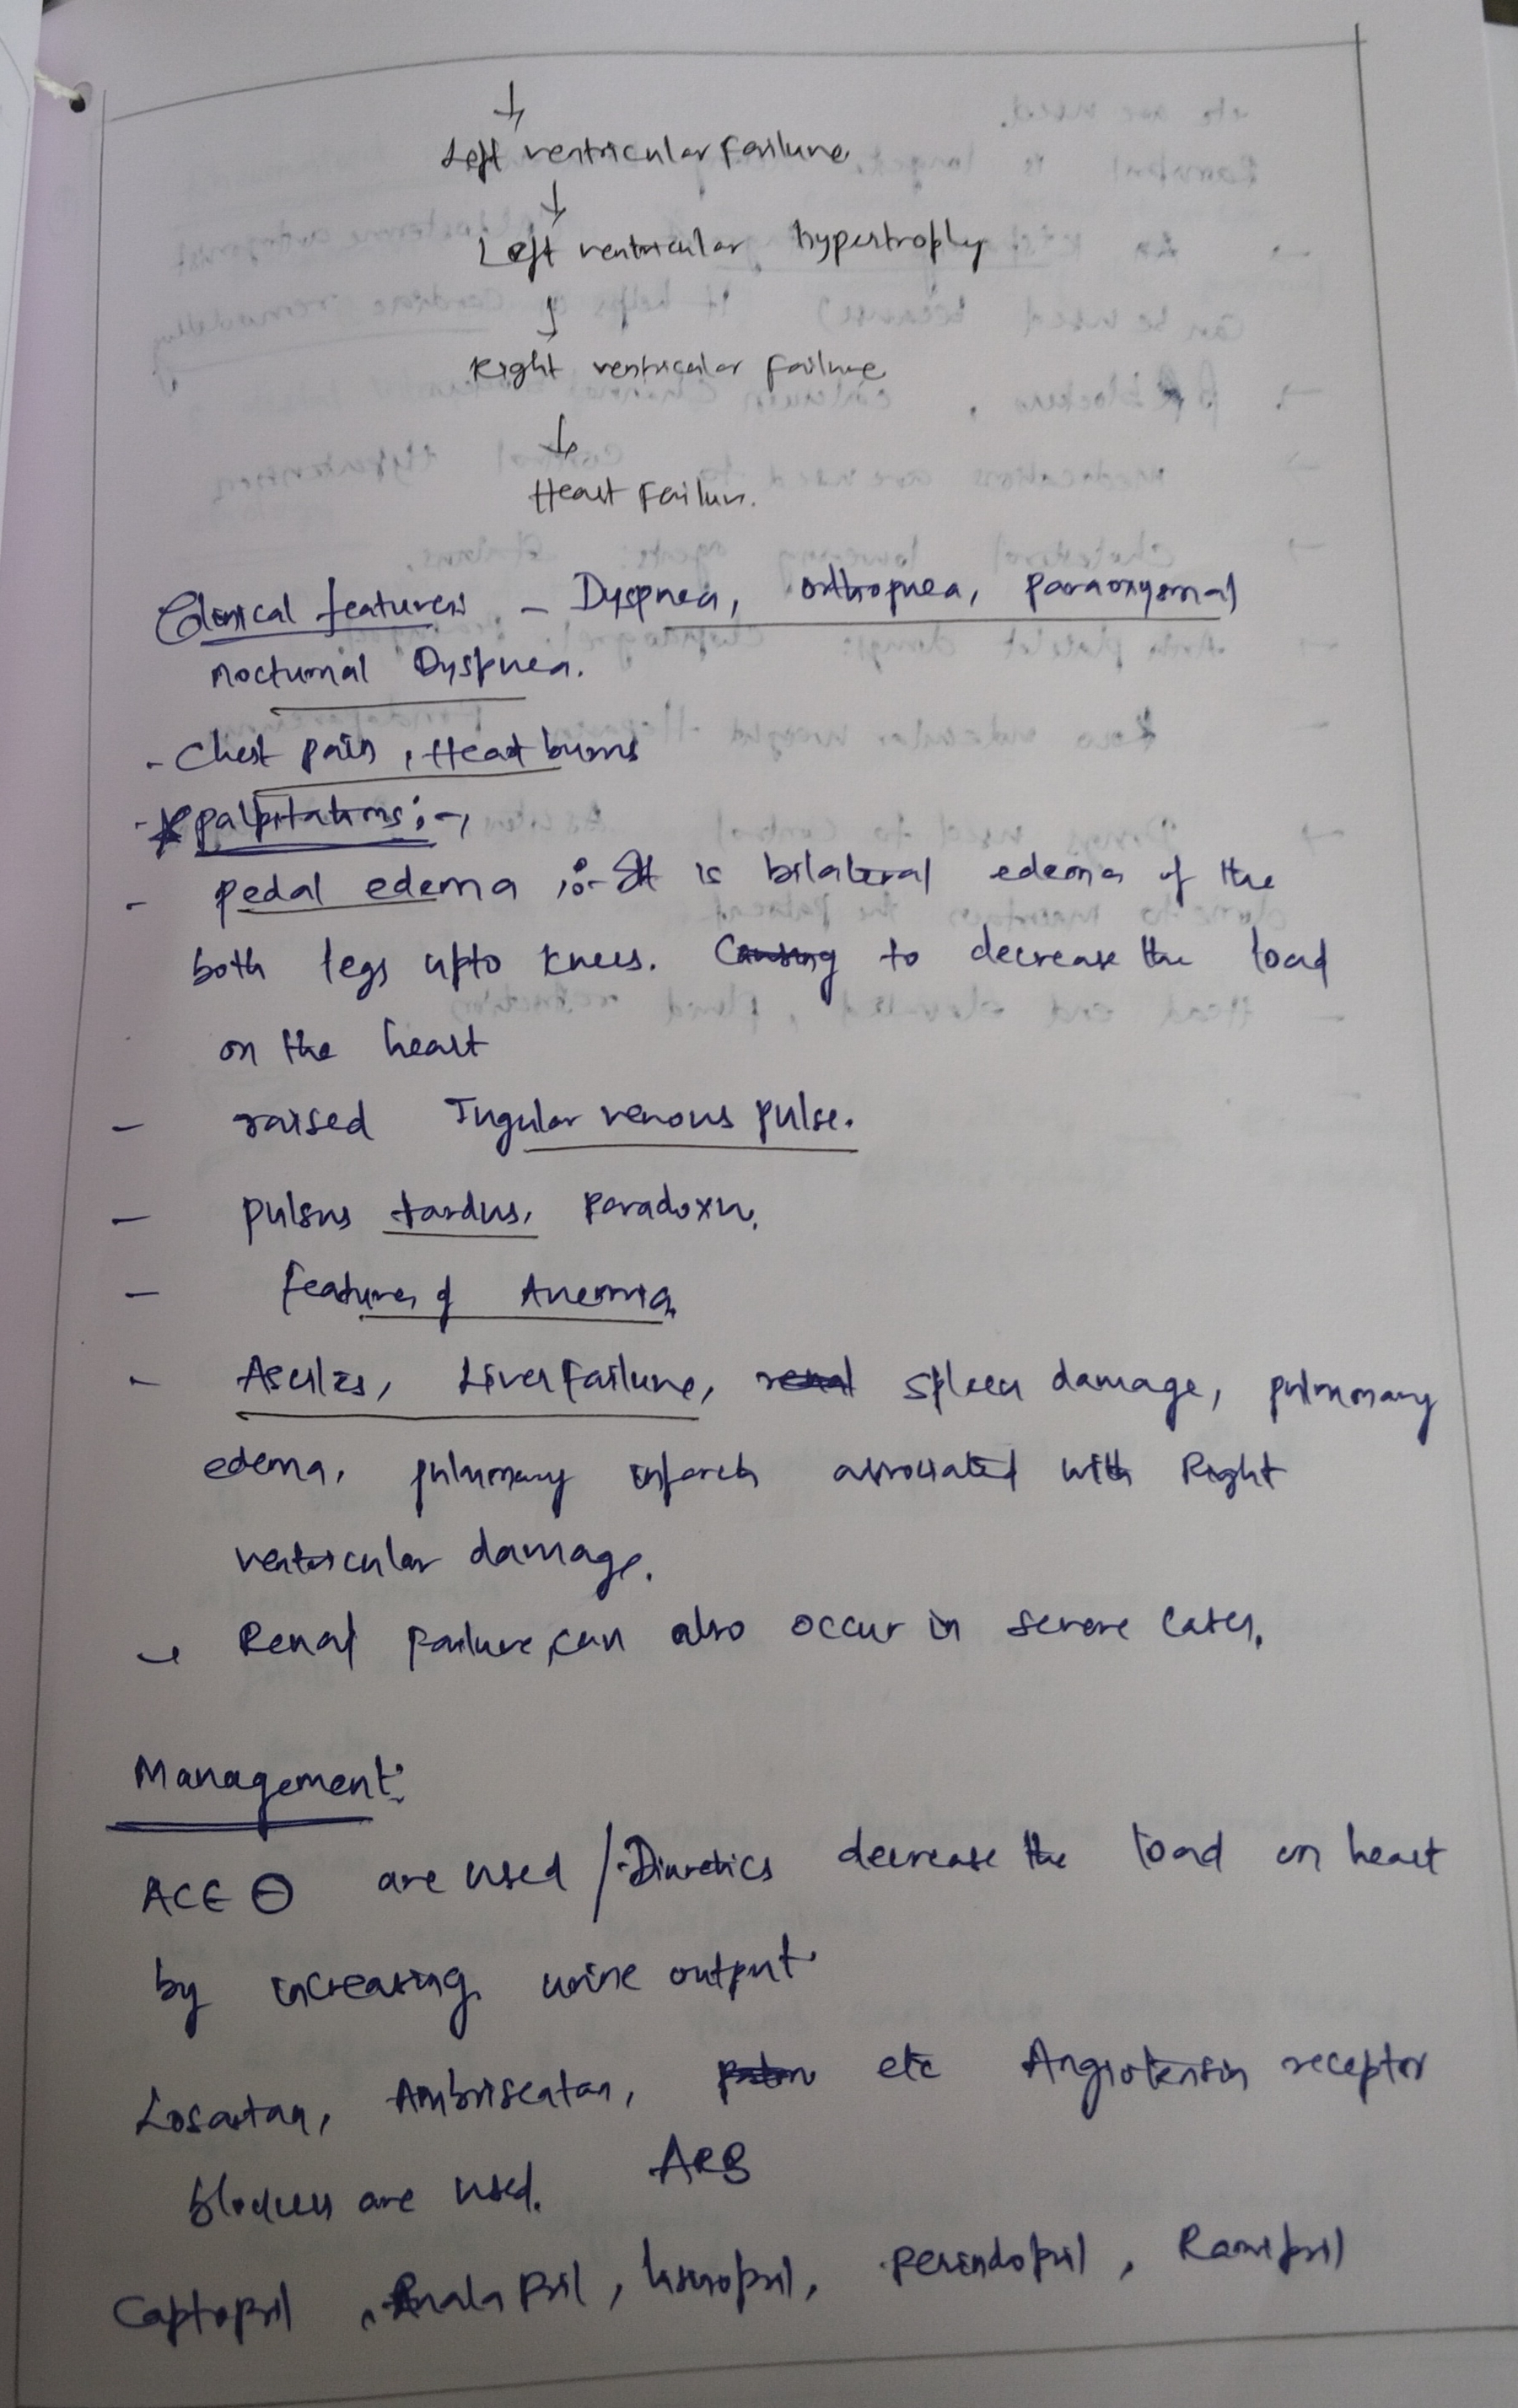 ↓
Left ventricular failure
↓
Left ventricular hypertrophy
↓
Right ventricular failure
↓
Heart Failur.
Clinical features - Dyspnea, orthopnea, paraoxysmal
nocturnal Dyspnea.
- Chest pain, Heart burns
- palpitations :-
- pedal edema :- It is bilateral edema of the
both legs upto knees. Causing to decrease the load
on the heart
- raised Jugular venous pulse.
- pulsus tardus, paradoxu.
- features of Anemia.
- Ascites, Liver Failure, renal spleen damage, pulmonary
edema, pulmonary infarcts associated with Right
ventricular damage.
- Renal failure can also occur in severe cases.
Management:
ACE ⊖ are used / Diuretics decrease the load on heart
by increasing urine output.
Losartan, Ambrisentan, etc Angiotensin receptor
blockers are used. ARB
Captopril, Enalapril, lisinopril, perindopril, Ramipril